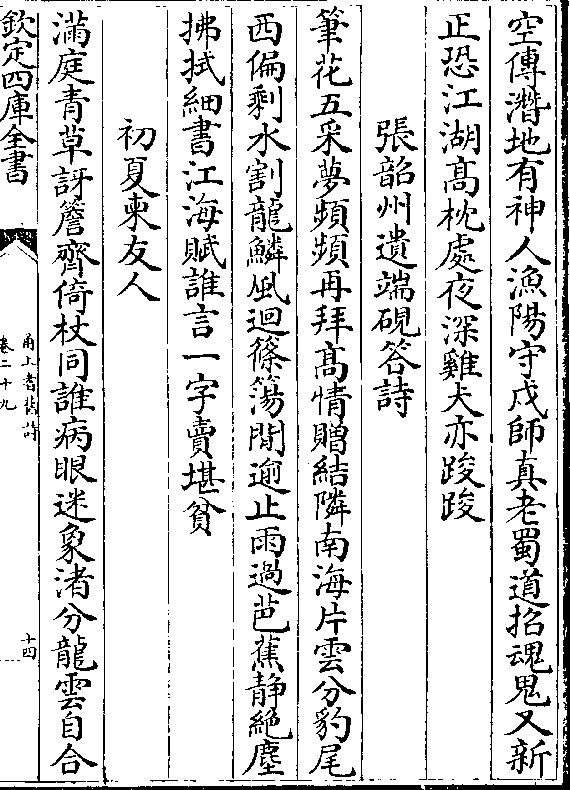 空傳潛地有神人漁陽守戍師真老蜀道招魂鬼又新
正恐江湖髙枕處夜深雞犬亦踆踆
張韶州遺端硯答詩
筆花五采夢頻頻再拜髙情贈結隣南海片雲分豹尾
西偏剩水割龍鱗風迴篠簜閒逾止雨過芭蕉静絶塵
拂拭細書江海賦誰言一字賣堪貧
初夏柬友人
滿庭青草訝簷齊倚杖同誰病眼迷象渚分龍雲自合
欽定四庫全書
甬上耆舊詩
卷二十九
十四